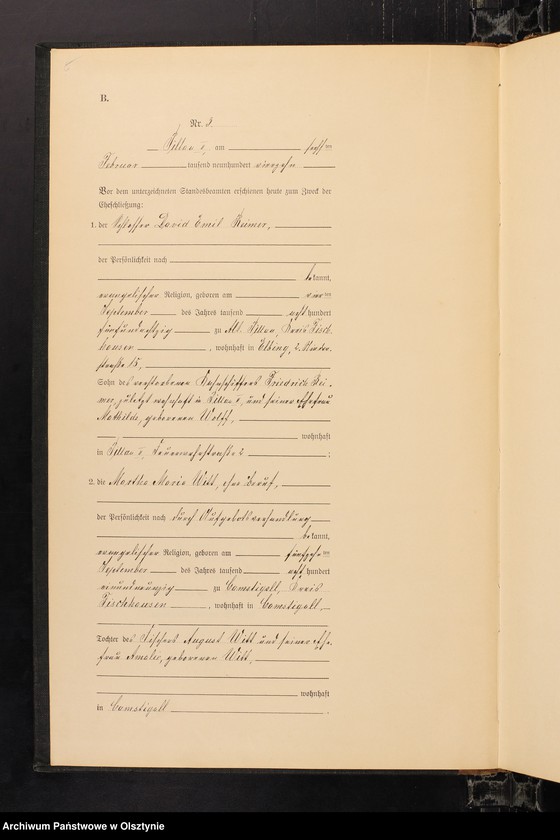 B.
Nr. 3.
Pillau I, am sechsten
Februar tausend neunhundert vierzehn
Vor dem unterzeichneten Standesbeamten erschienen heute zum Zweck der
Eheschließung:
1. der Schlosser David Emil Reimer,
der Persönlichkeit nach
bekannt,
evangelischer Religion, geboren am
September des Jahres tausend acht hundert
fünfundachtzig zu Alt Pillau, Kreis Fisch-
hausen, wohnhaft in Elbing, 2.
straße 15,
Sohn des verstorbenen Friedrich Rei-
mer, zuletzt wohnhaft in Pillau I, und seiner Ehefrau
Mathilde, geborenen Wolff,
wohnhaft
in Pillau I, Feuerwehrstraße 2;
2. die Martha Maria Witt, ohne Beruf,
der Persönlichkeit nach durch Aufgebotsverhandlung
bekannt,
evangelischer Religion, geboren am fünfzehnten
September des Jahres tausend acht hundert
einundneunzig zu Camstigall, Kreis
Fischhausen, wohnhaft in Camstigall,
Tochter des Fischers August Witt und seiner Ehe-
frau Amalie, geborenen Witt,
wohnhaft
in Camstigall.
Archiwum Państwowe w Olsztynie